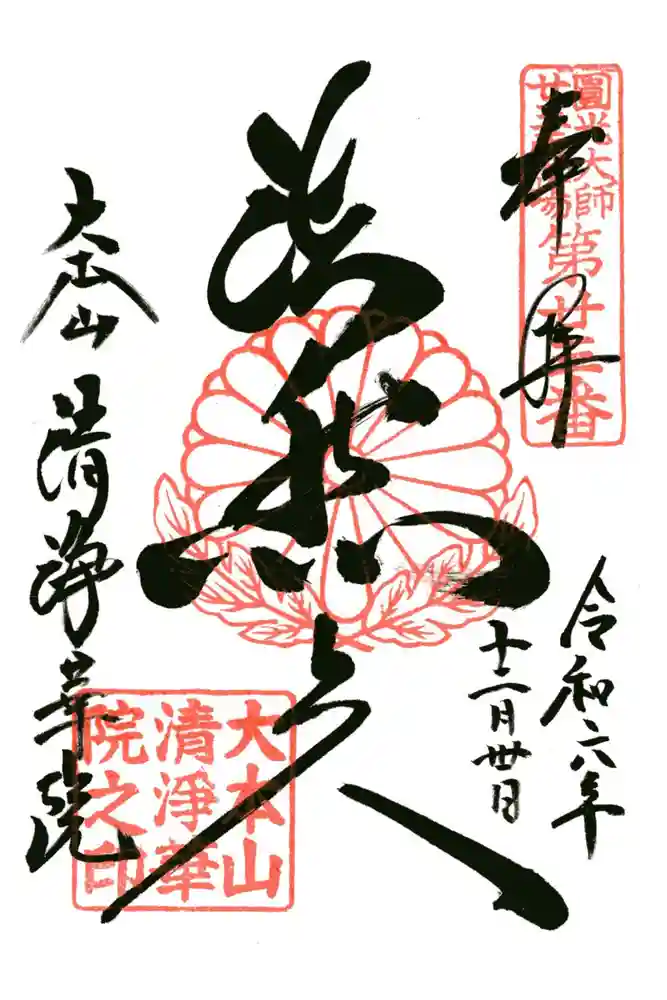 奉拝
圓光大師
廿五霊場
第廿三番
令和六年
十二月卅日
法然上人
大本山
清浄華院
大本山
清淨華
院之印